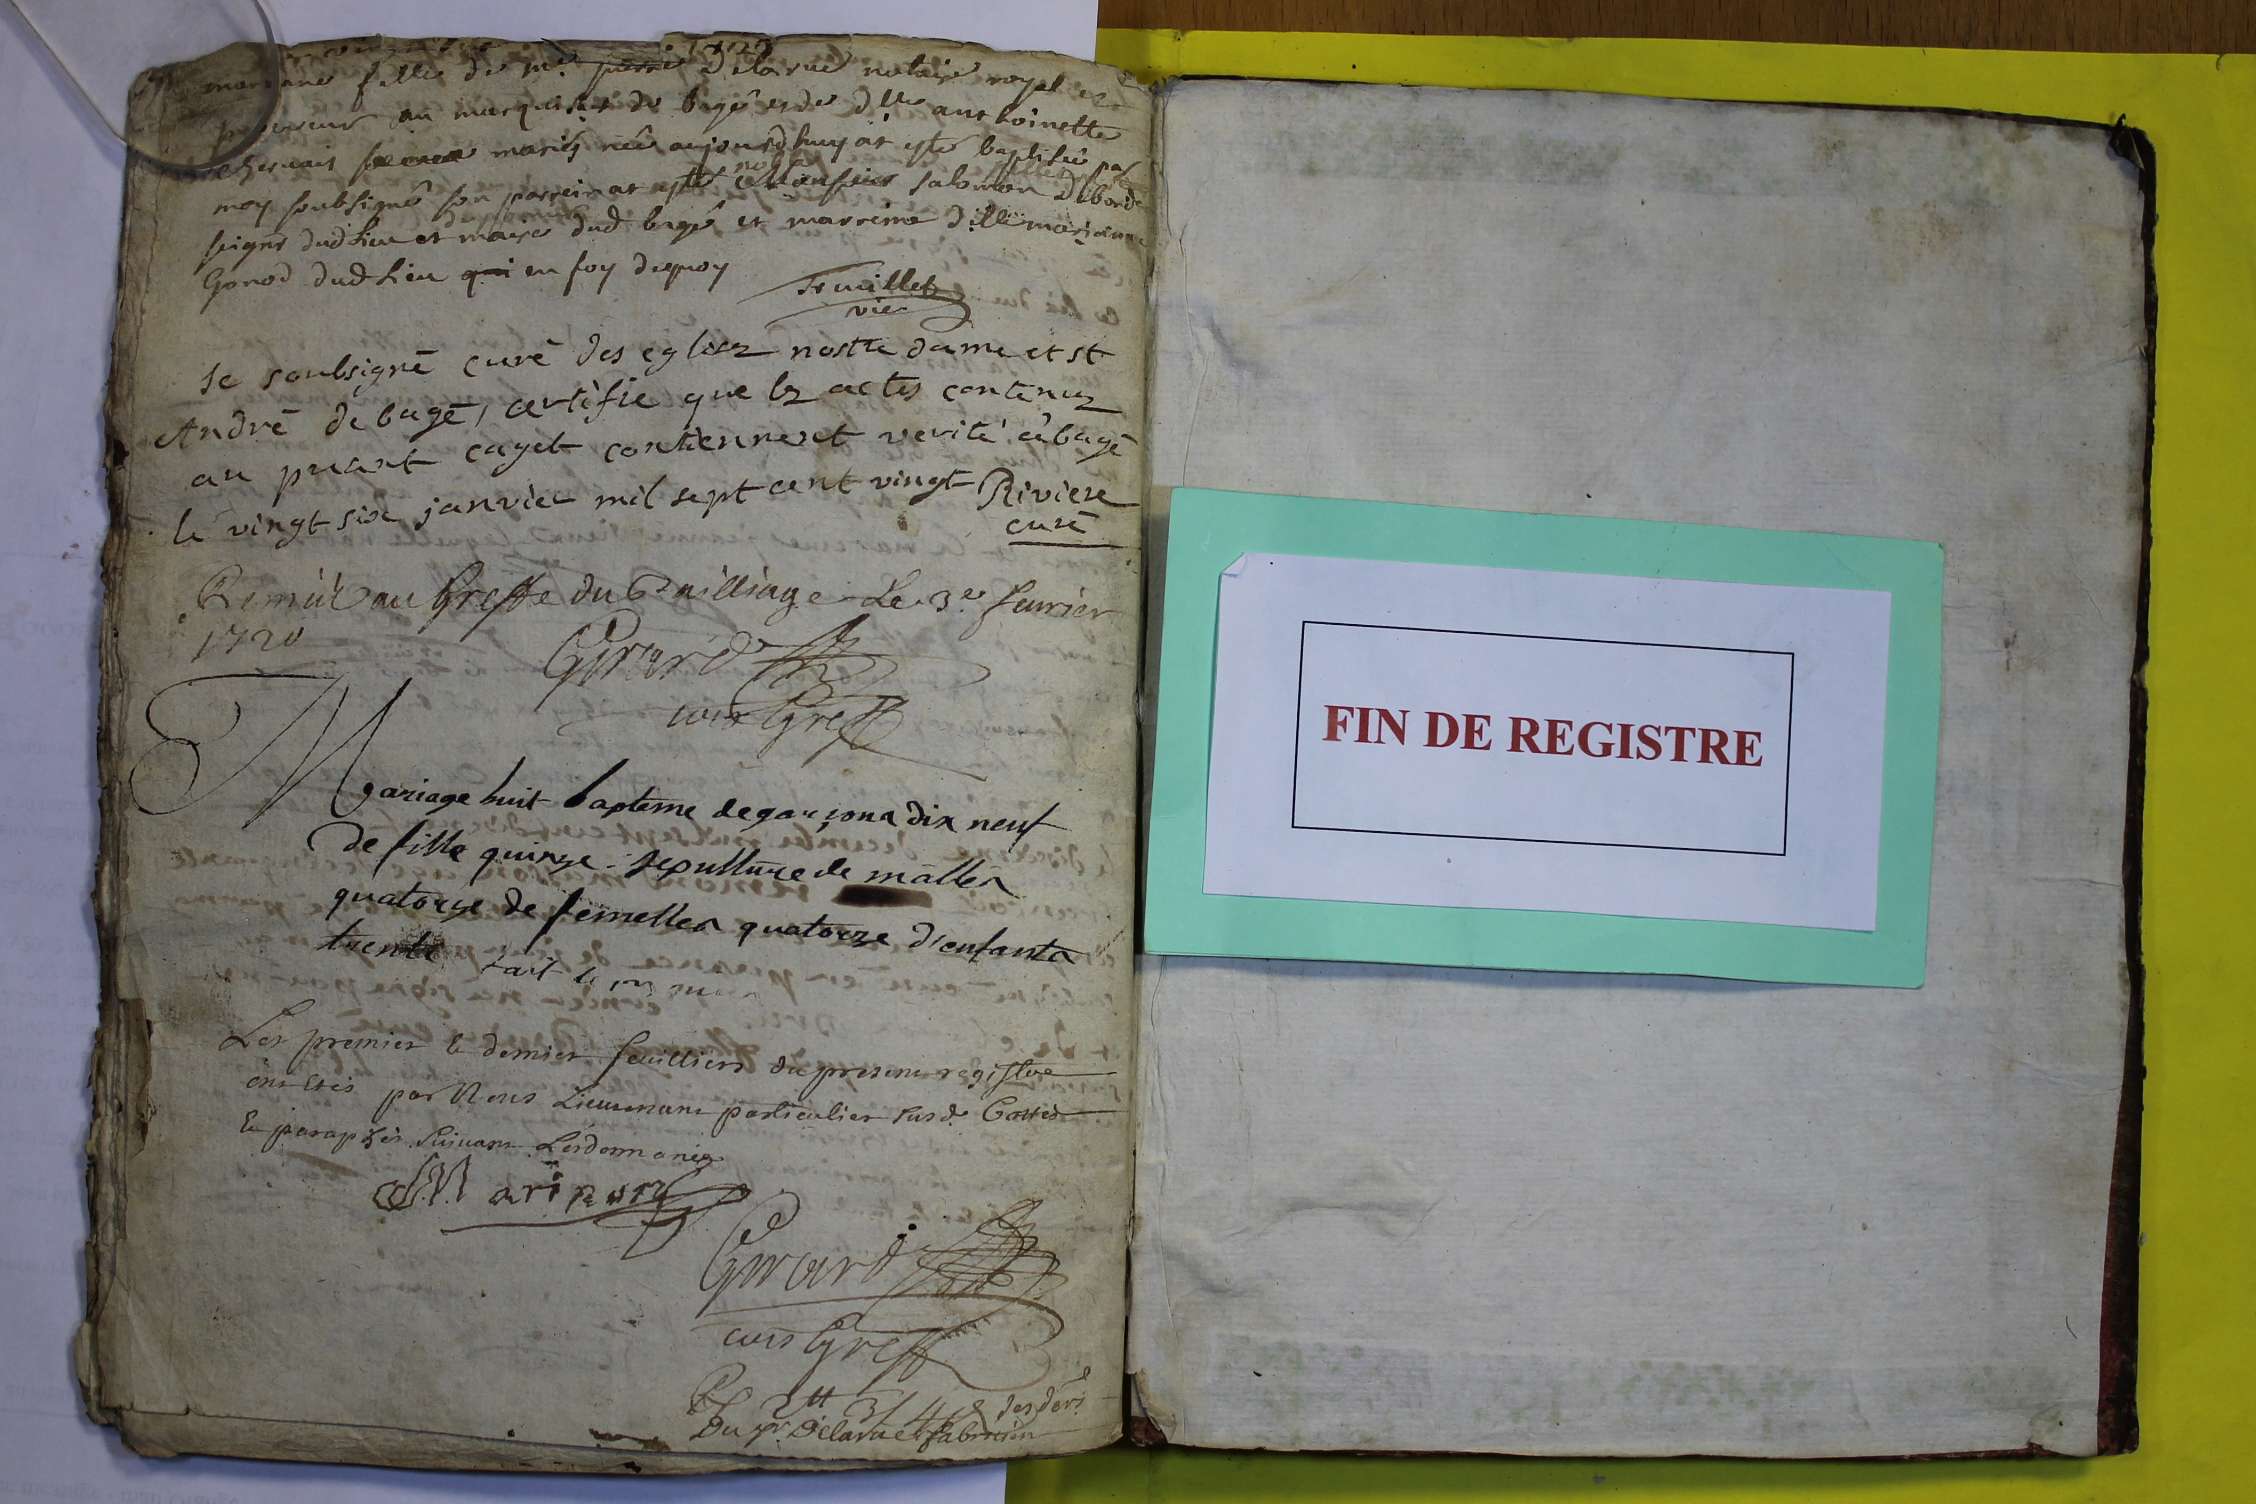 mariane fille de me pierre Delarue notaire royal et
procureur au marquisat de bagé et de dlle anthoinette
chervais mariés née aujourdhuy at esté baptisée par
moy soubsigné son parrein at esté Monsieur salomon Debord
seignr dud lieu et maire dud bagé et marreine dlle marianne
Gonod dud lieu qui en foy dequoy
feuillet
vic
Je soubsigné curé des eglises nostre dame et st
André de bagé, certifie que les actes contenus
au pnt cayet contiennent verité a bagé
le vingt six janvier mil sept cent vingt Riviere
curé
Remis au Greffe du Bailliage le 3e fevrier
1720
Girard
Greff
Mariage huit bapteme de garçons dix neuf
de fille quinze sepulture de malles
quatorze de femelles quatorze d'enfants
trente
Les premier & dernier feuilliers du present registre
ont etés par Nous Lieutenant particulier susd. Cottés
& paraphés suivant Lordonnance
Girard
Greff
FIN DE REGISTRE